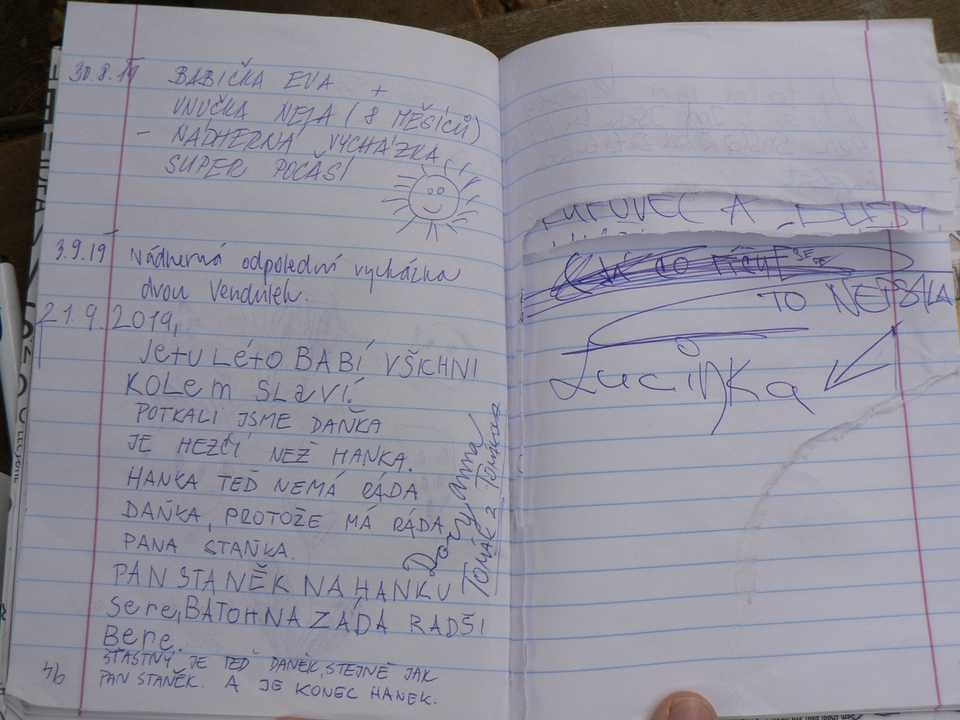 30.8.19 BABIČKA EVA +
VNUČKA NEJA (8 MĚSÍCŮ)
- NÁDHERNÁ VYCHÁZKA
SUPER POČASÍ
3.9.19 Nádherná odpolední vycházka
dvou Vendulek.
21.9.2019,
Je tu Léto BABÍ VŠICHNI
KOLem SLaVí.
POTKALI JSME DAŇKA
JE HEZČÍ NEŽ HANKA.
HANKA TEĎ NEMÁ RÁDA
DAŇKA, PROTOŽE MÁ RÁDA
PANA STAŇKA.
PAN STANĚK NA HANKU
sere, BATOH NA ZÁDA RADŠI
Bere.
ŠŤASTNÝ JE TEĎ DANĚK, STEJNĚ JAK
PAN STANĚK. A JE KONEC HANEK.
TOMÁŠ Z
46
A
TO NEPSALA
Lucinka